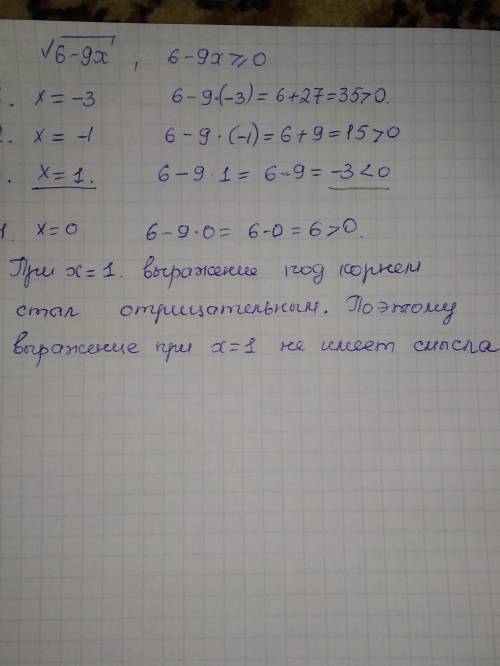 √6-9x , 6-9x⩾0
. x = -3 6-9·(-3) = 6+27=35>0.
. x = -1 6-9·(-1)=6+9=15>0
. x=1. 6-9·1= 6-9= -3<0
1. x=0 6-9·0= 6-0=6>0.
При x=1. выражение под корнем
стал отрицательным. Поэтому
выражение при x=1 не имеет смысла